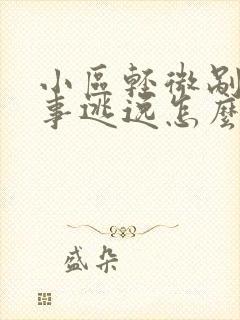 小區輕微剮
事逃逸怎麼
盛朵